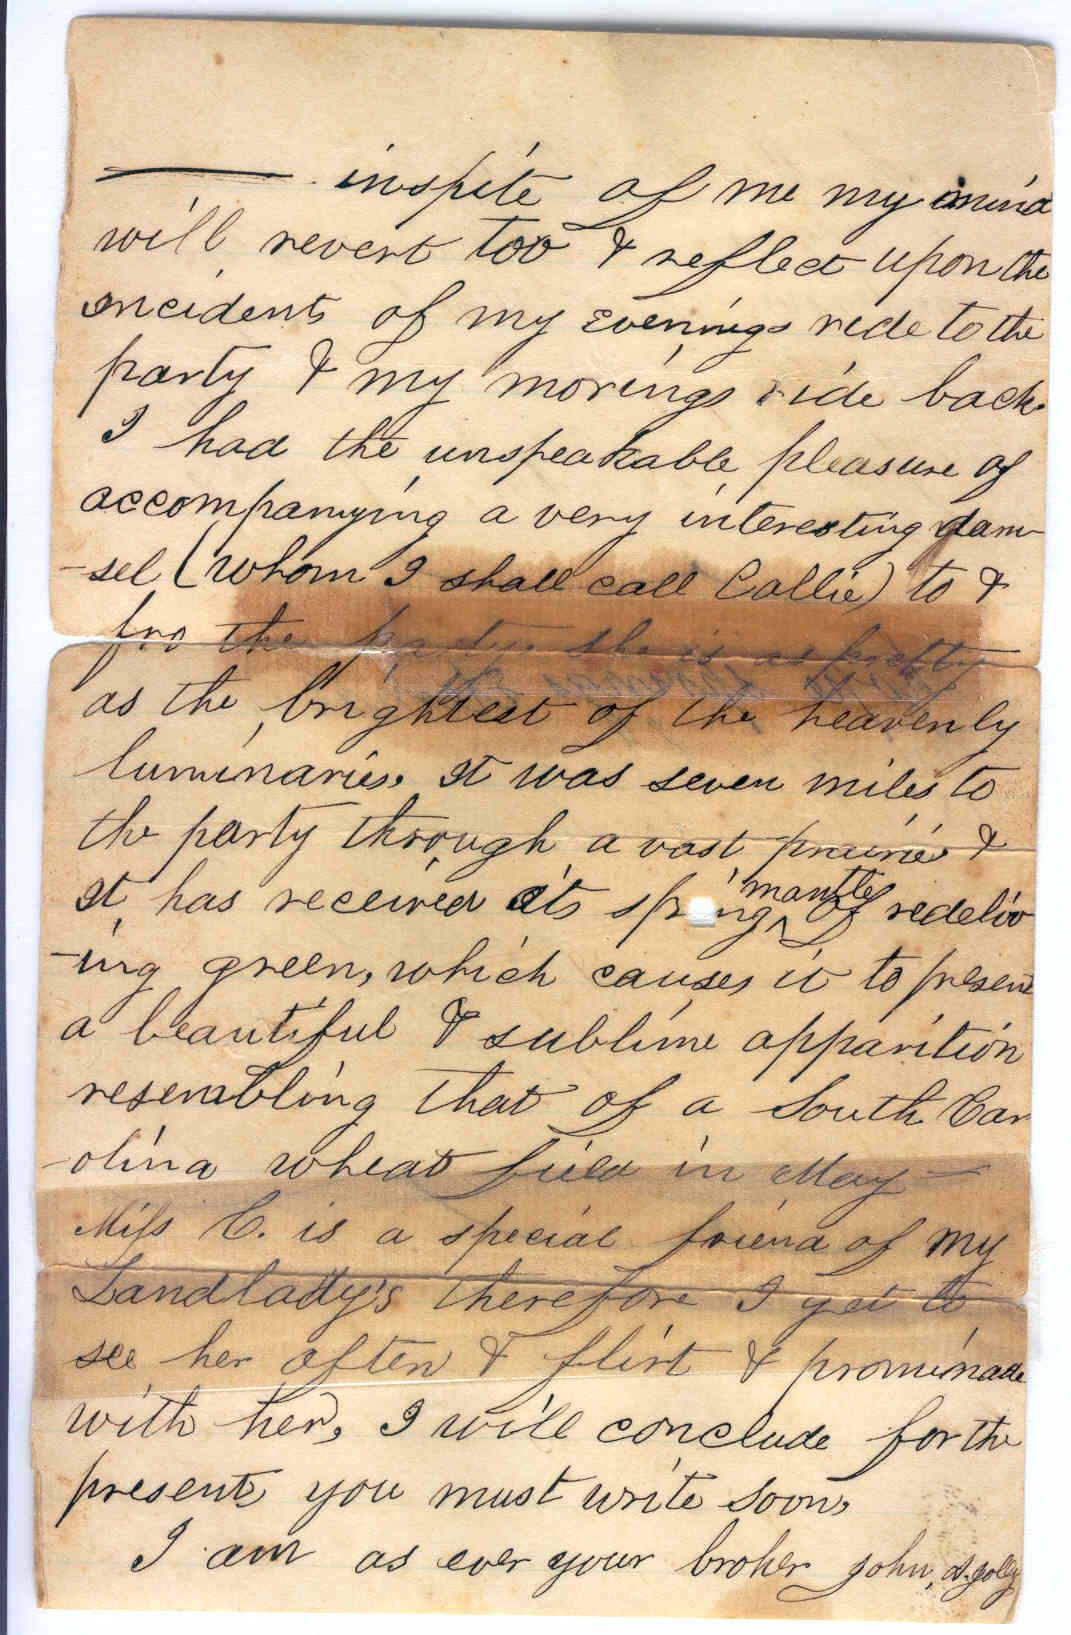 inspite of me my mind
will revert too & reflect upon the
incidents of my evenings ride to the
party & my morings ride back.
I had the unspeakable pleasure of
accompanying a very interesting dam-
-sel (whom I shall call Callie) to &
fro the party. she is as pretty
as the brightest of the heavenly
luminaries. it was seven miles to
the party through a vast prairie &
it has received its spring mantle of redoliv
-ing green, which causes it to present
a beautiful & sublime apparition
resembling that of a South Car
-olina wheat field in May —
Miss C. is a special friend of my
Landlady's therefore I get to
see her often & flirt & prominade
with her, I will conclude for the
present, you must write soon,
I am as ever your broher John, Jolly